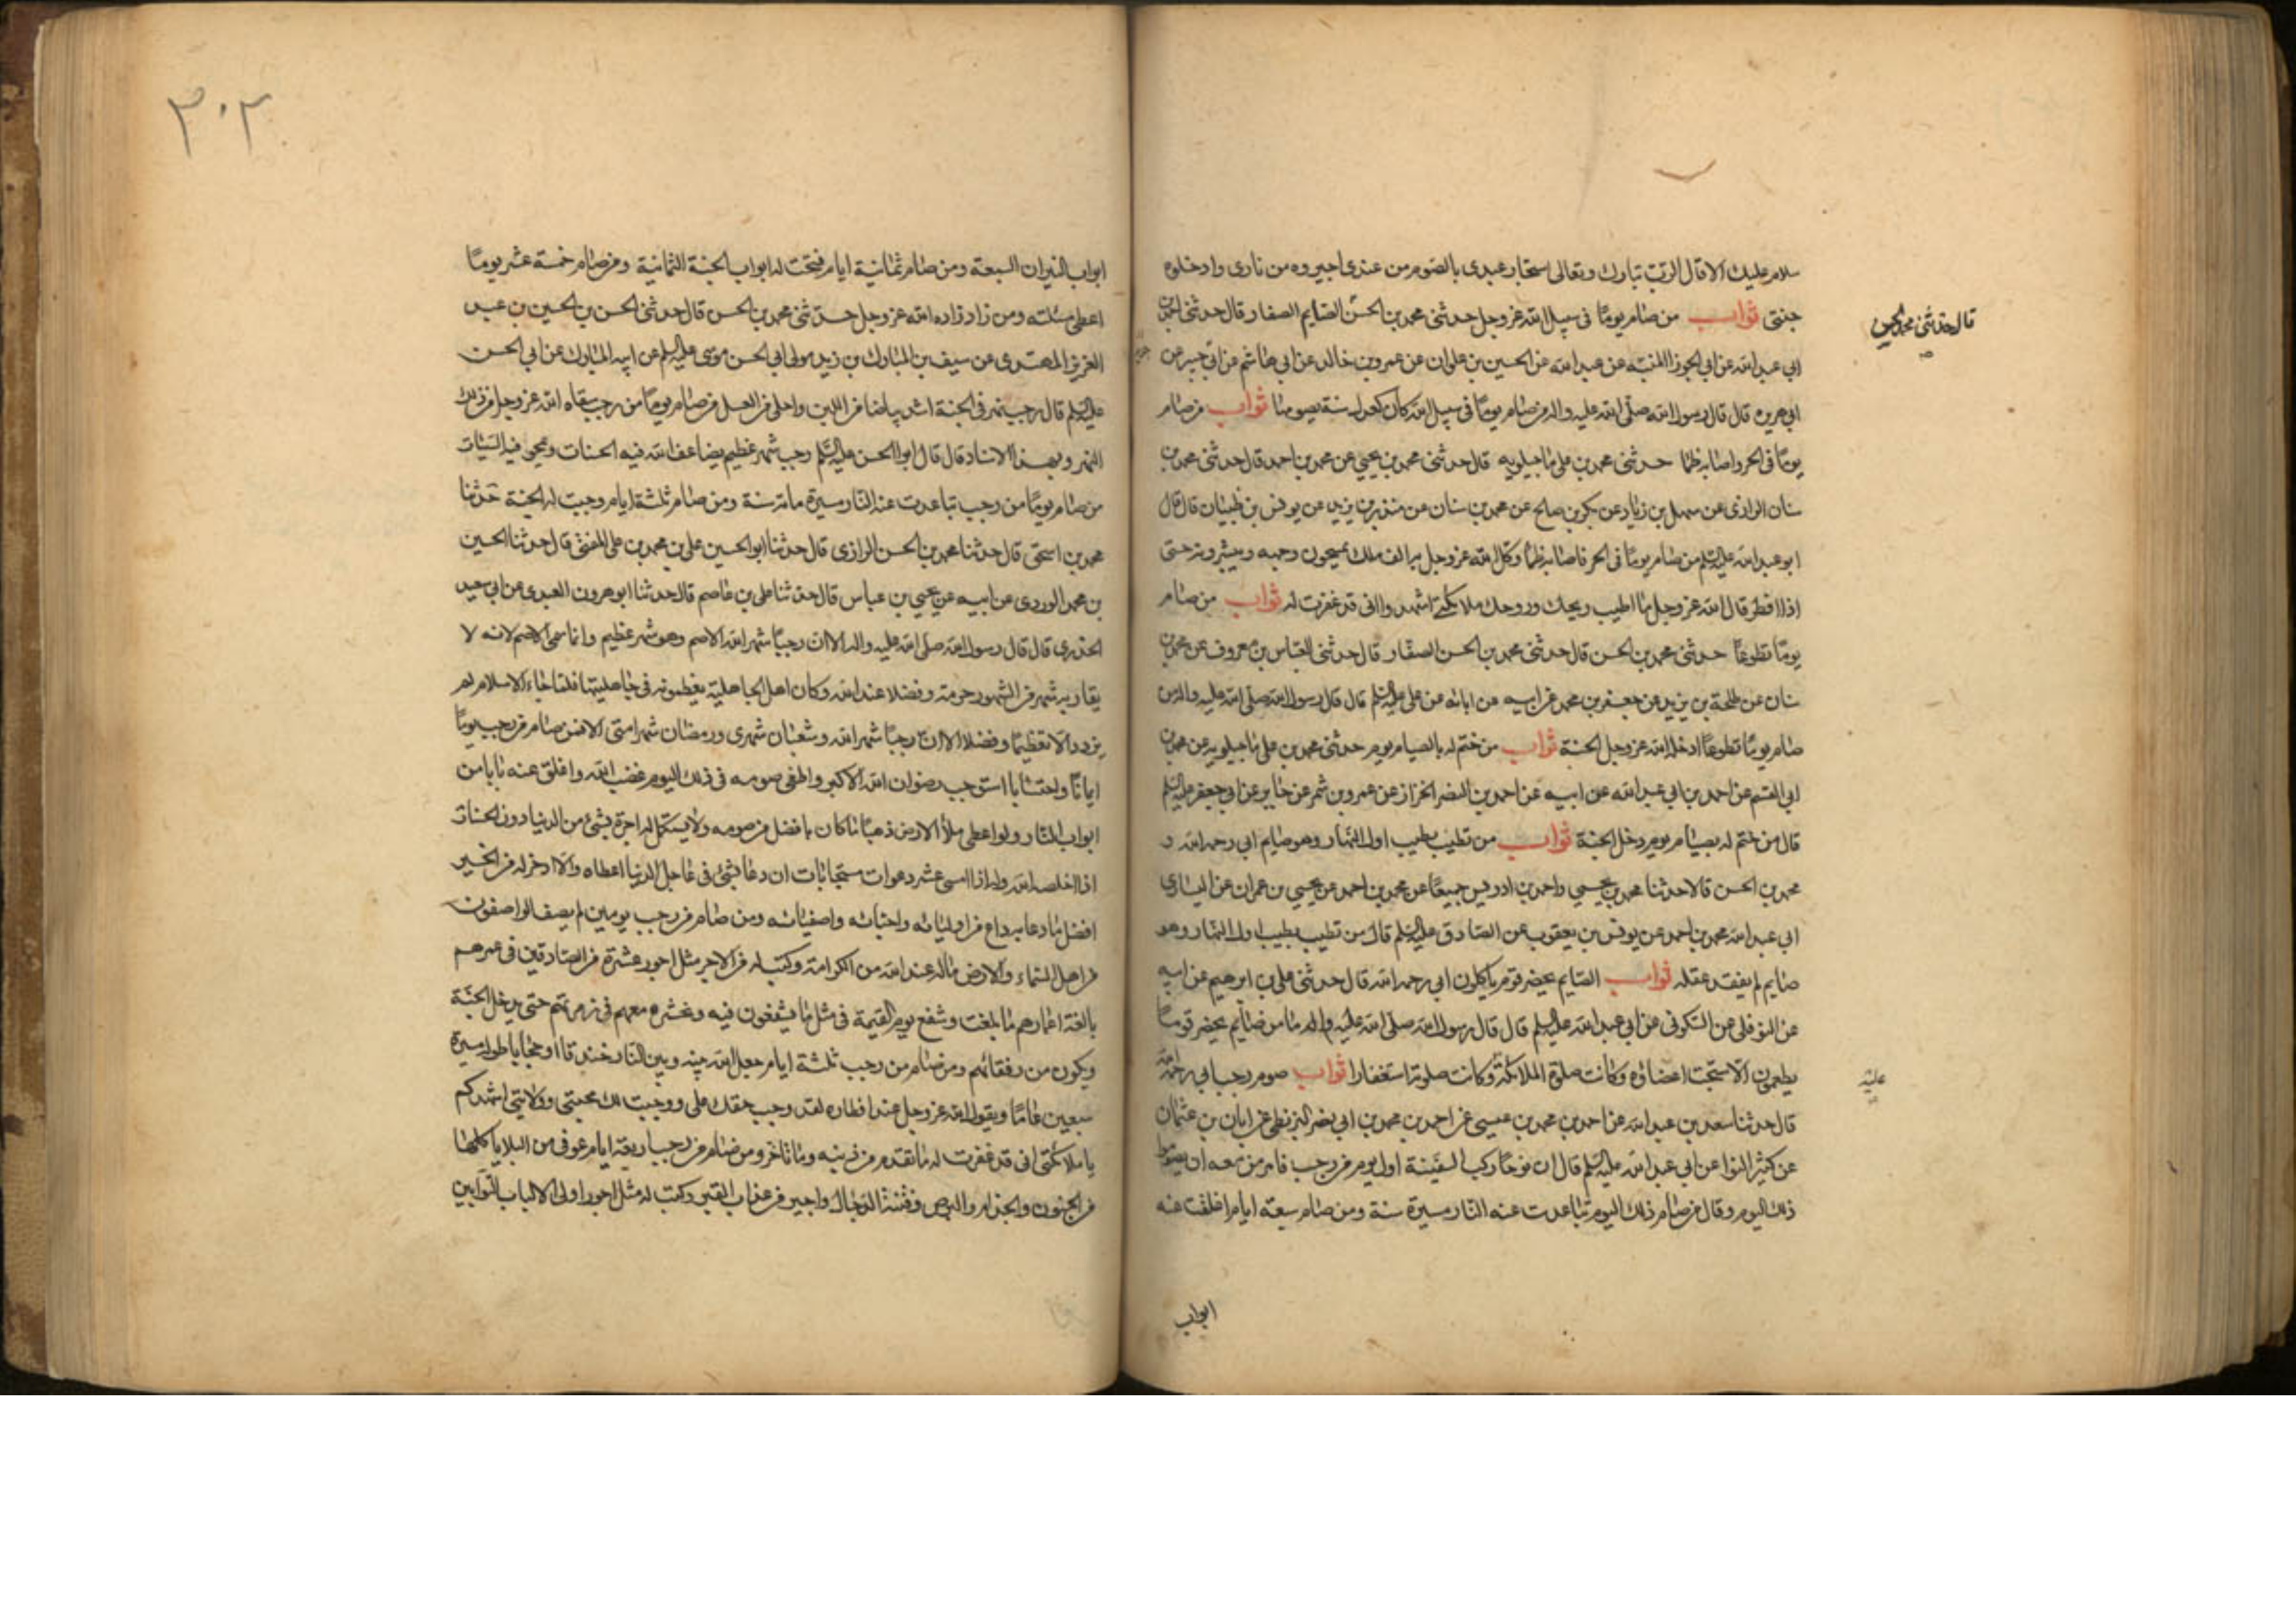 سلام عليك الا قال الرب تبارك وتعالى استجار عبدى بالصوم من عندى اجيروه من نارى وادخلوه
جنتى ثواب من صام يوما فى سبيل الله عز وجل حدثنى محمد بن الحسن الصفار قال حدثنى احمد بن
قال حدثنى محمد بن الحسن
ابى عبد الله عن ابى الجوزا المنبه عن عبد الله عن الحسين بن علوان عن عمرو بن خالد عن ابى هاشم عن ابى جبير عن
ابى هريره قال قال رسول الله صلى الله عليه واله من صام يوما فى سبيل الله كان كعدل سنة يصومها ثواب من صام
يوما فى الحر واصابه ظما حدثنى محمد بن على ماجيلويه قال حدثنى محمد بن يحيى عن محمد بن احمد قال حدثنى محمد بن
سنان الرازى عن سهل بن زياد عن بكر بن صالح عن محمد بن سنان عن منذر بن يزيد عن يونس بن ظبيان قال قال
ابو عبد الله عليه السلم من صام يوما فى الحر فاصابه ظما وكل الله عز وجل به الف ملك يمسحون وجهه ويبشرونه حتى
اذا افطر قال الله عز وجل ما اطيب ريحك وروحك ملائكتى اشهدوا انى قد غفرت له ثواب من صام
يوما تطوعا حدثنى محمد بن الحسن قال حدثنى محمد بن الحسن الصفار قال حدثنى العباس بن معروف عن محمد بن
سنان عن طلحة بن يزيد عن جعفر بن محمد عن ابيه عن ابائه عن على عليه السلم قال قال رسول الله صلى الله عليه واله من
صام يوما تطوعا ادخله الله عز وجل الجنة ثواب من ختم له بالصيام يوم حدثنى محمد بن على ماجيلويه عن محمد بن
ابى القسم عن احمد بن ابى عبد الله عن ابيه عن احمد بن النضر الخزاز عن عمرو بن شمر عن جابر عن ابى جعفر عليه السلم
قال من ختم له بصيام يوم دخل الجنة ثواب من تطيب بطيب اول النهار وهو صايم ابى رحمه الله و
محمد بن الحسن قالا حدثنا محمد بن يحيى واحمد بن ادريس جميعا عن محمد بن احمد عن يحيى بن عمران عن اليسارى
ابى عبد الله محمد بن احمد عن يونس بن يعقوب عن الصادق عليه السلم قال من تطيب بطيب اول النهار وهو
صايم لم يفقد عقله ثواب الصايم يحضر قوم ياكلون ابى رحمه الله قال حدثنى على بن ابرهيم عن ابيه
عن النوفلى عن السكونى عن ابى عبد الله عليه السلم قال قال رسول الله صلى الله عليه واله ما من صايم يحضر قوما
يطعمون الا سبحت اعضاؤه وكانت صلوة الملائكة وكانت صلوتها استغفارا ثواب صوم رجب ابى رحمه الله
عليه
قال حدثنا سعد بن عبد الله عن احمد بن محمد بن عيسى عن احمد بن محمد بن ابى نصر البزنطى عن ابان بن عثمان
عن كثير النوا عن ابى عبد الله عليه السلم قال ان نوحا ركب السفينة اول يوم من رجب فامر من معه ان يصوموا
ذلك اليوم وقال من صام ذلك اليوم تباعدت عنه النار مسيرة سنة ومن صام سبعة ايام اغلقت عنه
ابواب
٣٠٢
ابواب النيران السبعة ومن صام ثمانية ايام فتحت له ابواب الجنة الثمانية ومن صام خمسة عشر يوما
اعطى مسئلته ومن زاد زاده الله عز وجل حدثنى محمد بن الحسن قال حدثنى الحسن بن الحسين بن عبد
العزيز المهتدى عن سيف بن المبارك بن زيد مولى ابى الحسن موسى عليه السلم عن ابيه المبارك عن ابى الحسن
عليه السلم قال رجب نهر فى الجنة اشد بياضا من اللبن واحلى من العسل من صام يوما من رجب سقاه الله عز وجل من ذلك
النهر وبهذا الاسناد قال قال ابو الحسن عليه السلم رجب شهر عظيم يضاعف الله فيه الحسنات ويمحو فيه السيئات
من صام يوما من رجب تباعدت عنه النار مسيرة مائة سنة ومن صام ثلثة ايام وجبت له الجنة حدثنا
محمد بن اسحق قال حدثنا محمد بن الحسن الرازى قال حدثنا ابو الحسين على بن محمد بن على المفتى قال حدثنا الحسين
بن محمد المروزى عن ابيه عن يحيى بن عباس قال حدثنا على بن عاصم قال حدثنا ابو هرون العبدى عن ابى سعيد
الخدرى قال قال رسول الله صلى الله عليه واله الا ان رجبا شهر الله الاصم وهو شهر عظيم وانما سمى الاصم لانه لا
يقاربه شهر من الشهور حرمة وفضلا عند الله وكان اهل الجاهلية يعظمونه فى جاهليتها فلما جاء الاسلام لم
يزدد الا تعظيما وفضلا الا ان رجبا شهر الله وشعبان شهرى ورمضان شهر امتى الا فمن صام من رجب يوما
ايمانا واحتسابا استوجب رضوان الله الاكبر واطفى صومه فى ذلك اليوم غضب الله واغلق عنه بابا من
ابواب النار ولو اعطى ملأ الارض ذهبا ما كان بافضل من صومه ولا يستكمل له اجره بشئ من الدنيا دون الحسنات
اذا اخلصه الله وله اذا امسى عشر دعوات مستجابات ان دعا بشئ فى عاجل الدنيا اعطاه والا ادخر له من الخير
افضل ما دعا به داع من اوليائه واحبائه واصفيائه ومن صام من رجب يومين لم يصف الواصفون
من اهل السماء والارض ماله عند الله من الكرامة وكتب له من الاجر مثل اجور عشرة من الصادقين فى عمرهم
بالغة اعمارهم ما بلغت وشفع يوم القيمة فى مثل ما يشفعون فيه ويحشره معهم فى زمرتهم حتى يدخل الجنة
ويكون من رفقائهم ومن صام من رجب ثلثة ايام جعل الله بينه وبين النار خندقا او حجابا طوله مسيرة
سبعين عاما ويقول الله عز وجل عند افطاره لقد وجب حقك على ووجبت لك محبتى وولايتى اشهدكم
يا ملائكتى انى قد غفرت له ما تقدم من ذنبه وما تاخر ومن صام من رجب اربعة ايام عوفى من البلايا كلها
من الجنون والجذام والبرص وفتنة الدجال واجير من عذاب القبر وكتب له مثل اجور اولى الالباب التوابين